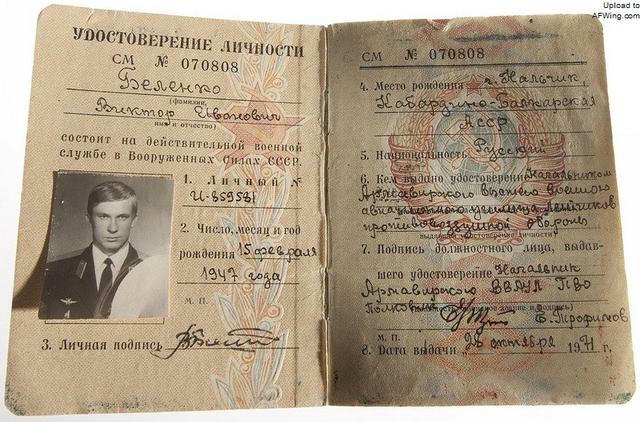 Upload to
AFWing.com
УДОСТОВЕРЕНИЕ ЛИЧНОСТИ
СМ № 070808
Беленко
(фамилия,
Виктор Иванович
имя и отчество)
состоит на действительной военной
службе в Вооруженных Силах СССР.
1. Личный №
И-859581
2. Число, месяц и год
рождения 15 февраля
1947 года
М. П.
3. Личная подпись
СМ № 070808
4. Место рождения г. Нальчик,
Кабардино-Балкарская
Асср
5. Национальность Русский
6. Кем выдано удостоверение Начальником
Армавирского высшего военного
авиационного училища летчиков
противовоздушной обороны
7. Подпись должностного лица, выдав-
шего удостоверение Начальник
Армавирского ВВАУЛ ПВО
Полковник Е. Трофимов
М. П.
8. Дата выдачи „28 октября 1971 г.